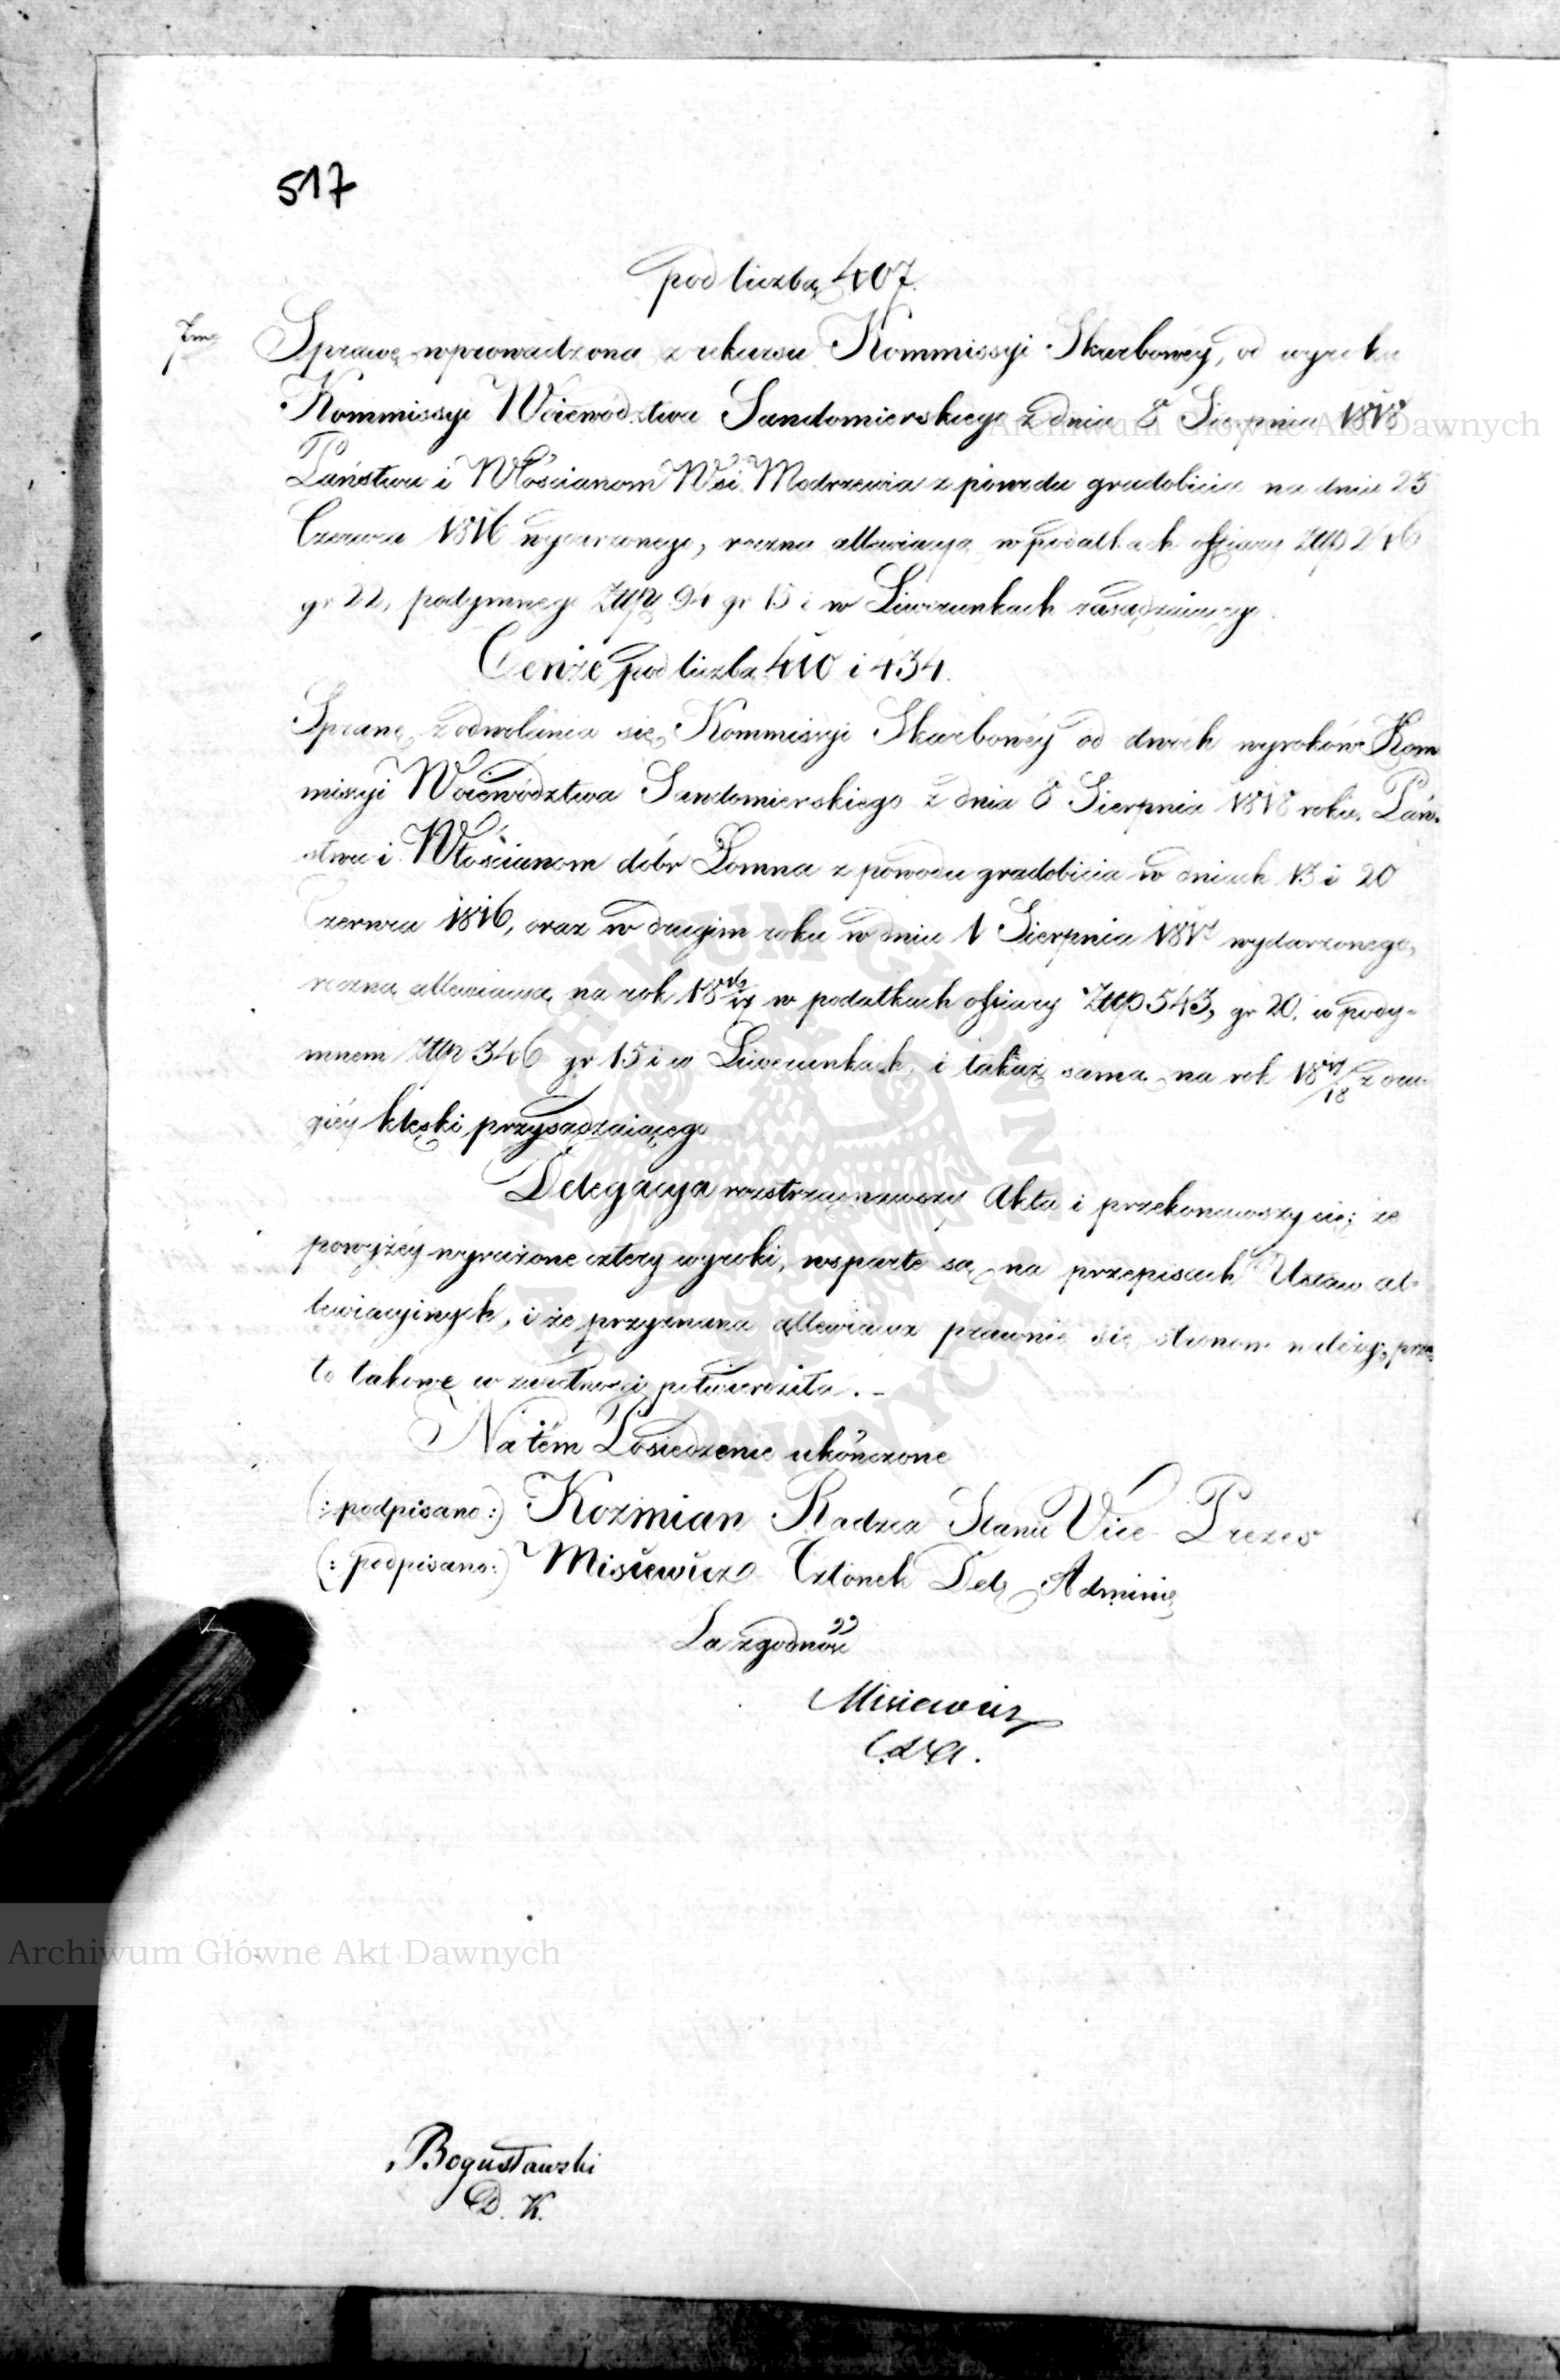 517
pod liczbą 407.
7me Sprawę wprowadzona z rekursu Kommissyi Skarbowéy, od wyroku
Kommissyi Woiewództwa Sandomierskiego z dnia 8 Sierpnia 1818
Państwu i Włościanom Wsi Modrzewia z powodu gradobicia na dniu 23
Czerwca 1816 wydarzonego, roczna allewiacya w podatkach ofiary Złp 246
gr 22, podymnego Złp 94 gr 15 i w Liwerunkach zasądzaiącego.
Tenże pod liczbą 410 i 434.
Sprawę z odwołania się Kommissyi Skarbowéy od dwóch wyroków Kom
missyi Woiewództwa Sandomierskiego z dnia 8 Sierpnia 1818 roku. Pań-
stwu i Włościanom dóbr Łomna z powodu gradobicia w dniach 13 i 20
Czerwca 1816, oraz w drugim roku w dniu 1 Sierpnia 1817 wydarzonego,
roczną allewiacyą na rok 1816/17 w podatkach ofiary Złp 543, gr 20. w pody-
mnem Złp 346 gr 15 i w Liwerunkach, i takąż samą na rok 1817/18 z dru-
giéy klęski przysądzaiącego
Delegacya roztrząsnąwszy Akta i przekonawszy się; że
powyżéy wyrażone cztery wyroki, wsparte są na przepisach Ustaw al-
lewiacyinych, i że przyznana allewiacya prawnie się stronom należy, prze
to takowe w zupełności potwierdziła. –
Na tém Posiedzenie ukończone
(: podpisano :) Kozmian Radzca Stanu Vice Prezes
(: podpisano :) Misiewicz Członek Del. Adminis
Za zgodność
Misiewicz
C. d. A.
Bogusławski
D. K.
Archiwum Główne Akt Dawnych
Archiwum Główne Akt Dawnych
ARCHIWUM GŁÓWNE AKT DAWNYCH